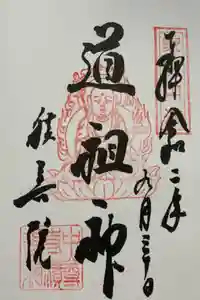 奉拝 令和二年
九月三十日
道祖神
積善院